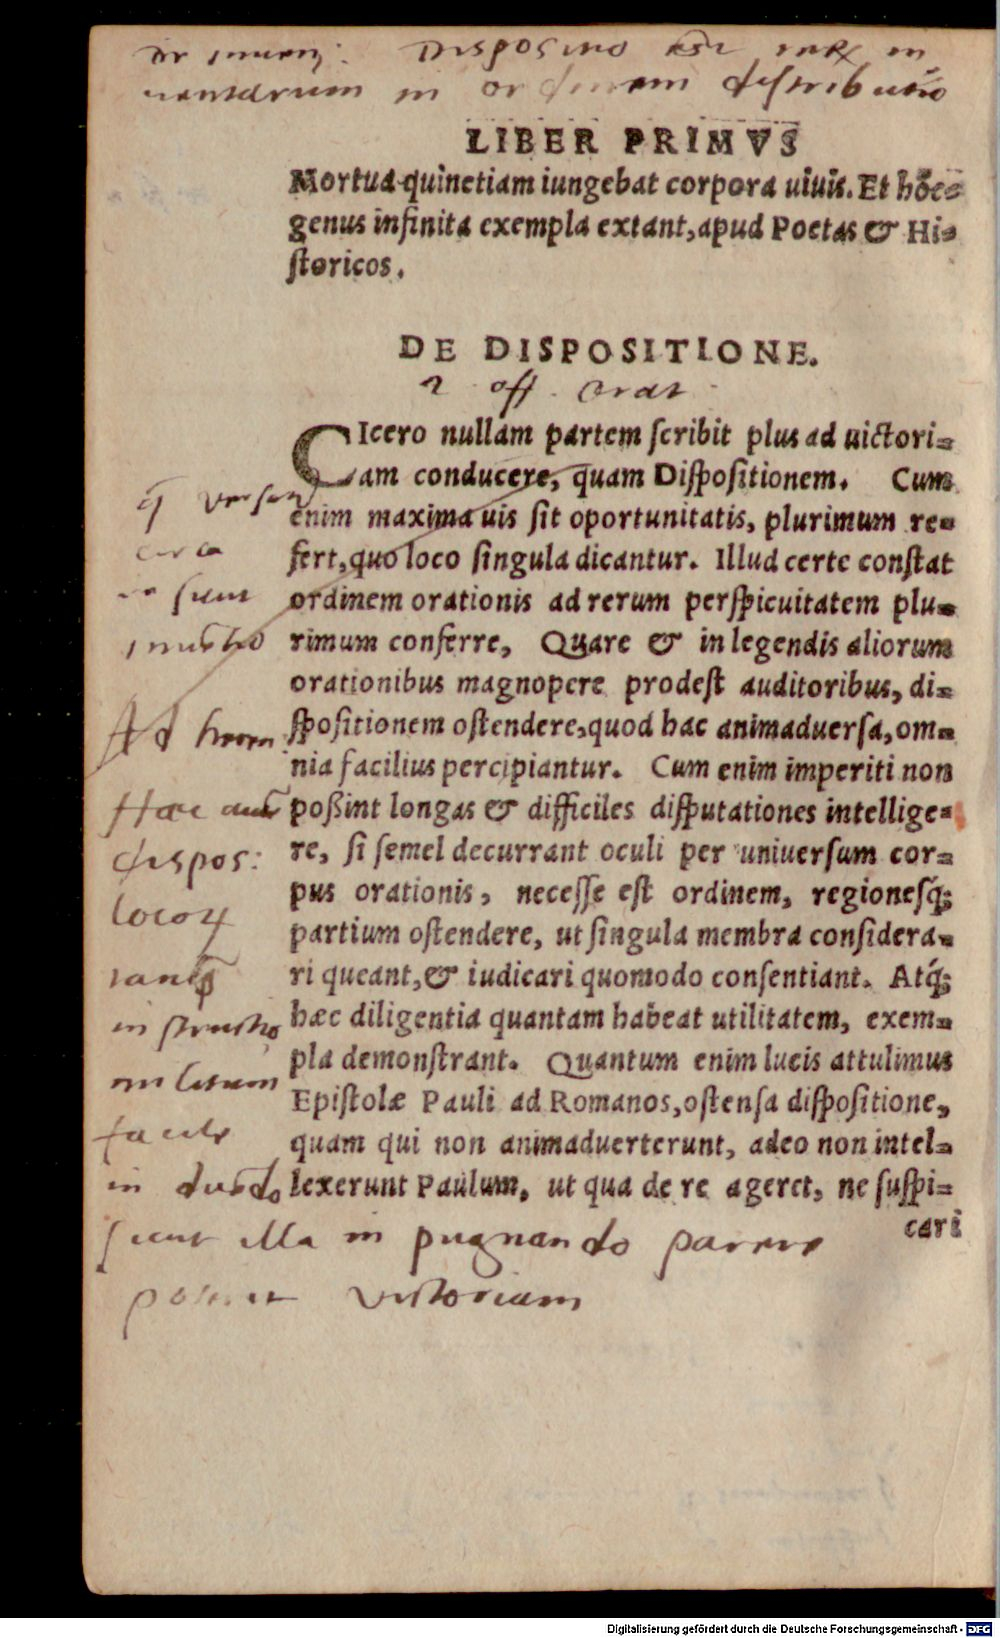 Dispositio est rerum in
uentarum in ordinem distributio
LIBER PRIMVS
Mortua quinetiam iungebat corpora uiuis. Et hoc=
genus infinita exempla extant, apud Poetas & Hi=
ſtoricos.
DE DISPOSITIONE.
2 off. Orat
CIcero nullam partem ſcribit plus ad uictori=
am conducere, quam Diſpoſitionem. Cum
enim maxima uis ſit oportunitatis, plurimum re=
fert, quo loco ſingula dicantur. Illud certe conſtat
ordinem orationis ad rerum perſpicuitatem plu=
rimum conferre, Quare & in legendis aliorum
orationibus magnopere prodeſt auditoribus, di=
ſpoſitionem oſtendere, quod hac animaduerſa, om=
nia facilius percipiantur. Cum enim imperiti non
poßint longas & difficiles diſputationes intellige=
re, ſi ſemel decurrant oculi per uniuerſum cor=
pus orationis, neceſſe eſt ordinem, regionesq́;
partium oſtendere, ut ſingula membra conſidera=
ri queant, & iudicari quomodo conſentiant. Atq́;
hæc diligentia quantam habeat utilitatem, exem=
pla demonſtrant. Quantum enim lucis attulimus
Epiſtolæ Pauli ad Romanos, oſtenſa diſpoſitione,
quam qui non animaduerterunt, adeo non intel=
lexerunt Paulum, ut qua de re ageret, ne ſuſpi=
cari
circa
Ad
Hæc
dispos:
locoꝝ
in
sicut illa in pugnando parere
victoriam
Digitalisierung gefördert durch die Deutsche Forschungsgemeinschaft - DFG